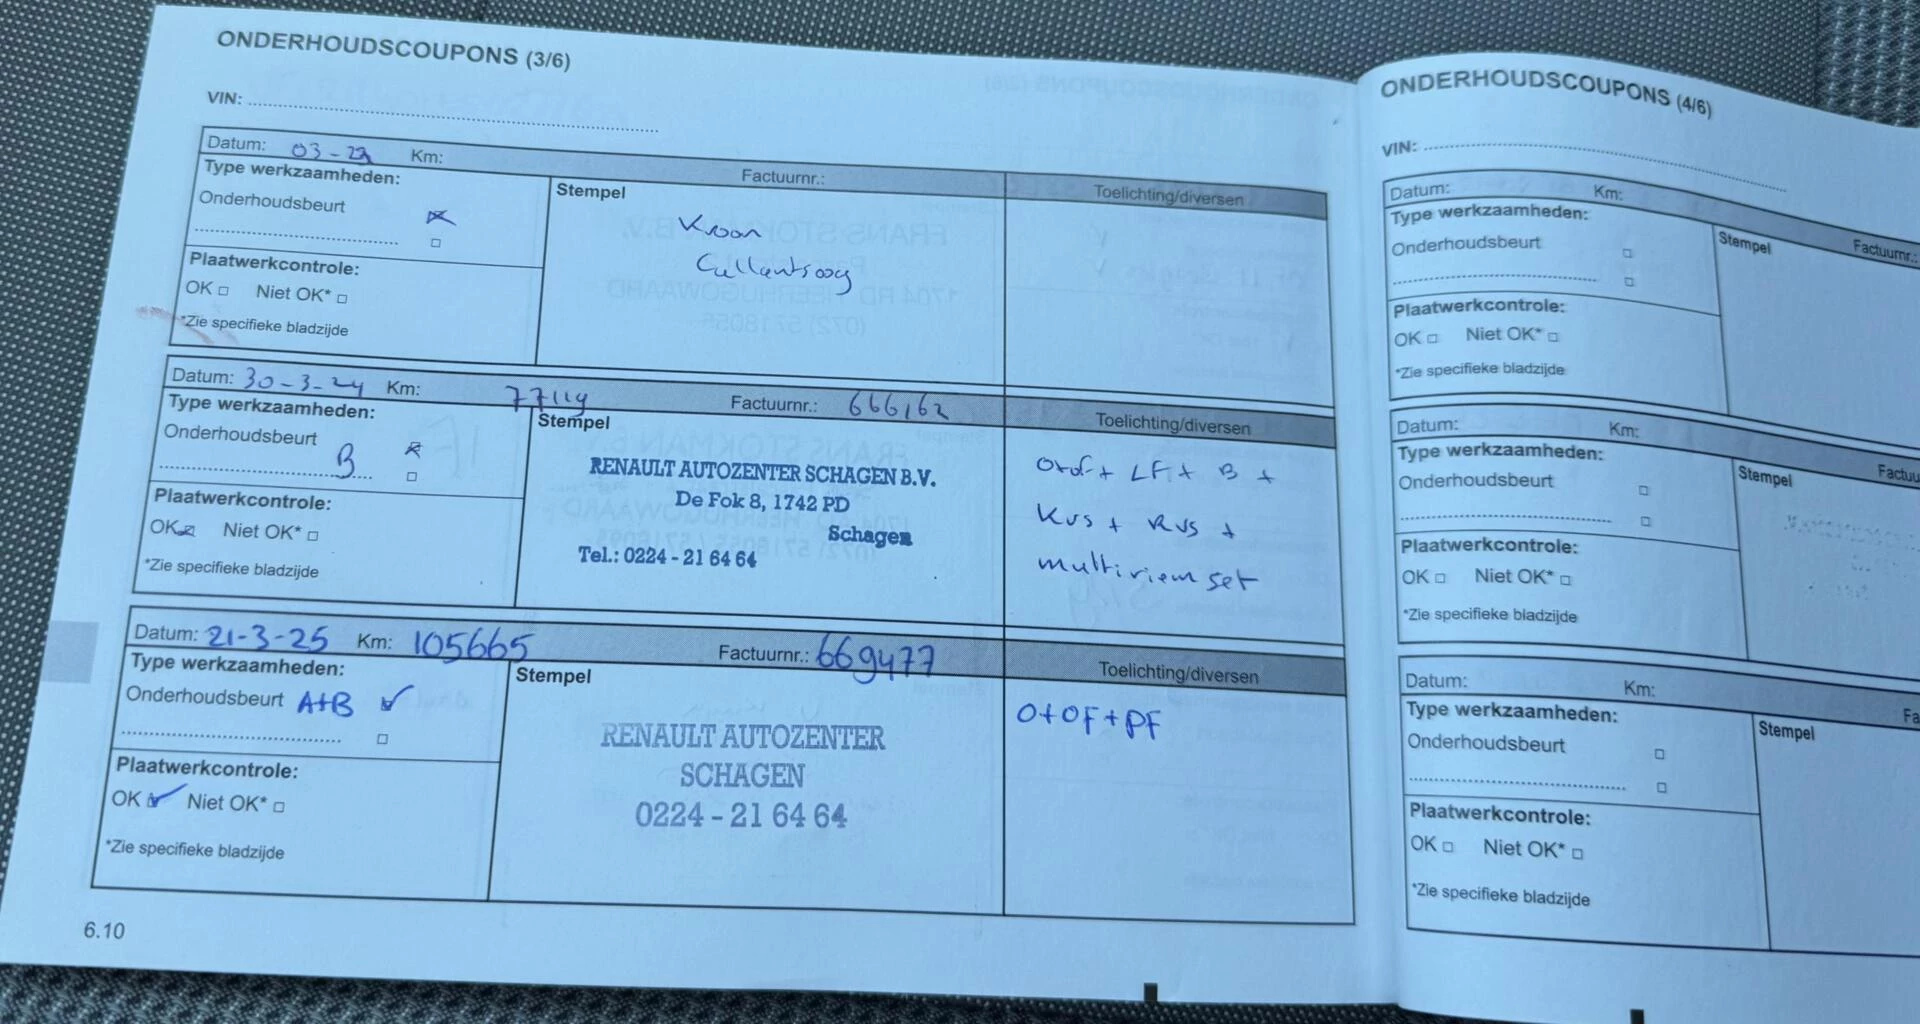 ONDERHOUDSCOUPONS (3/6)
VIN:
Datum: 03-23 Km: Factuurnr.: Toelichting/diversen
Type werkzaamheden:
Stempel
Onderhoudsbeurt
Kroon
Callantsoog
Plaatwerkcontrole:
OK Niet OK*
*Zie specifieke bladzijde
Datum: 30-3-24 Km: 77119 Factuurnr.: 666162 Toelichting/diversen
Type werkzaamheden:
Stempel
Onderhoudsbeurt
B
RENAULT AUTOZENTER SCHAGEN B.V.
De Fok 8, 1742 PD
Schagen
Tel.: 0224 - 21 64 64
O+of+ LF+ B +
Kvs + Rvs +
multiriem set
Plaatwerkcontrole:
OK Niet OK*
*Zie specifieke bladzijde
Datum: 21-3-25 Km: 105665 Factuurnr.: 669477 Toelichting/diversen
Type werkzaamheden:
Stempel
Onderhoudsbeurt A+B
RENAULT AUTOZENTER
SCHAGEN
0224 - 21 64 64
O+OF+PF
Plaatwerkcontrole:
OK Niet OK*
*Zie specifieke bladzijde
6.10
ONDERHOUDSCOUPONS (4/6)
VIN:
Datum: Km: Factuurnr.:
Type werkzaamheden:
Stempel
Onderhoudsbeurt
Plaatwerkcontrole:
OK Niet OK*
*Zie specifieke bladzijde
Datum: Km: Factuu
Type werkzaamheden:
Stempel
Onderhoudsbeurt
Plaatwerkcontrole:
OK Niet OK*
*Zie specifieke bladzijde
Datum: Km: Fa
Type werkzaamheden:
Stempel
Onderhoudsbeurt
Plaatwerkcontrole:
OK Niet OK*
*Zie specifieke bladzijde